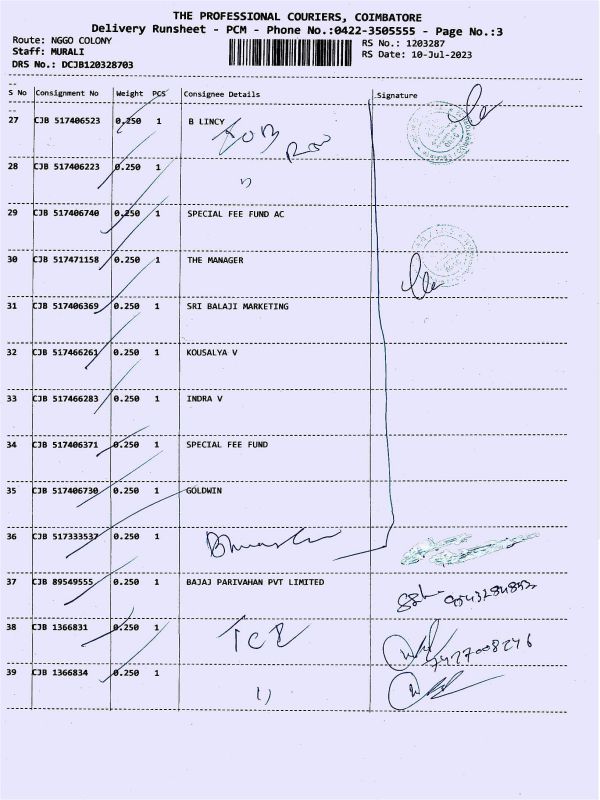 THE PROFESSIONAL COURIERS, COIMBATORE
Delivery Runsheet - PCM - Phone No.:0422-3505555 - Page No.:3
Route: NGGO COLONY RS No.: 1203287
Staff: MURALI RS Date: 10-Jul-2023
DRS No.: DCJB120328703
S No Consignment No Weight PCS Consignee Details Signature
27 CJB 517406523 0.250 1 B LINCY
28 CJB 517406223 0.250 1
29 CJB 517406740 0.250 1 SPECIAL FEE FUND AC
30 CJB 517471158 0.250 1 THE MANAGER
31 CJB 517406369 0.250 1 SRI BALAJI MARKETING
32 CJB 517466261 0.250 1 KOUSALYA V
33 CJB 517466283 0.250 1 INDRA V
34 CJB 517406371 0.250 1 SPECIAL FEE FUND
35 CJB 517406730 0.250 1 GOLDWIN
36 CJB 517333537 0.250 1
37 CJB 89549555 0.250 1 BAJAJ PARIVAHAN PVT LIMITED
38 CJB 1366831 0.250 1
39 CJB 1366834 0.250 1